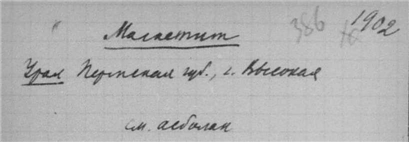 386 1902
Магнетит
Урал Пермская губ., г. Высокая
см. асболан